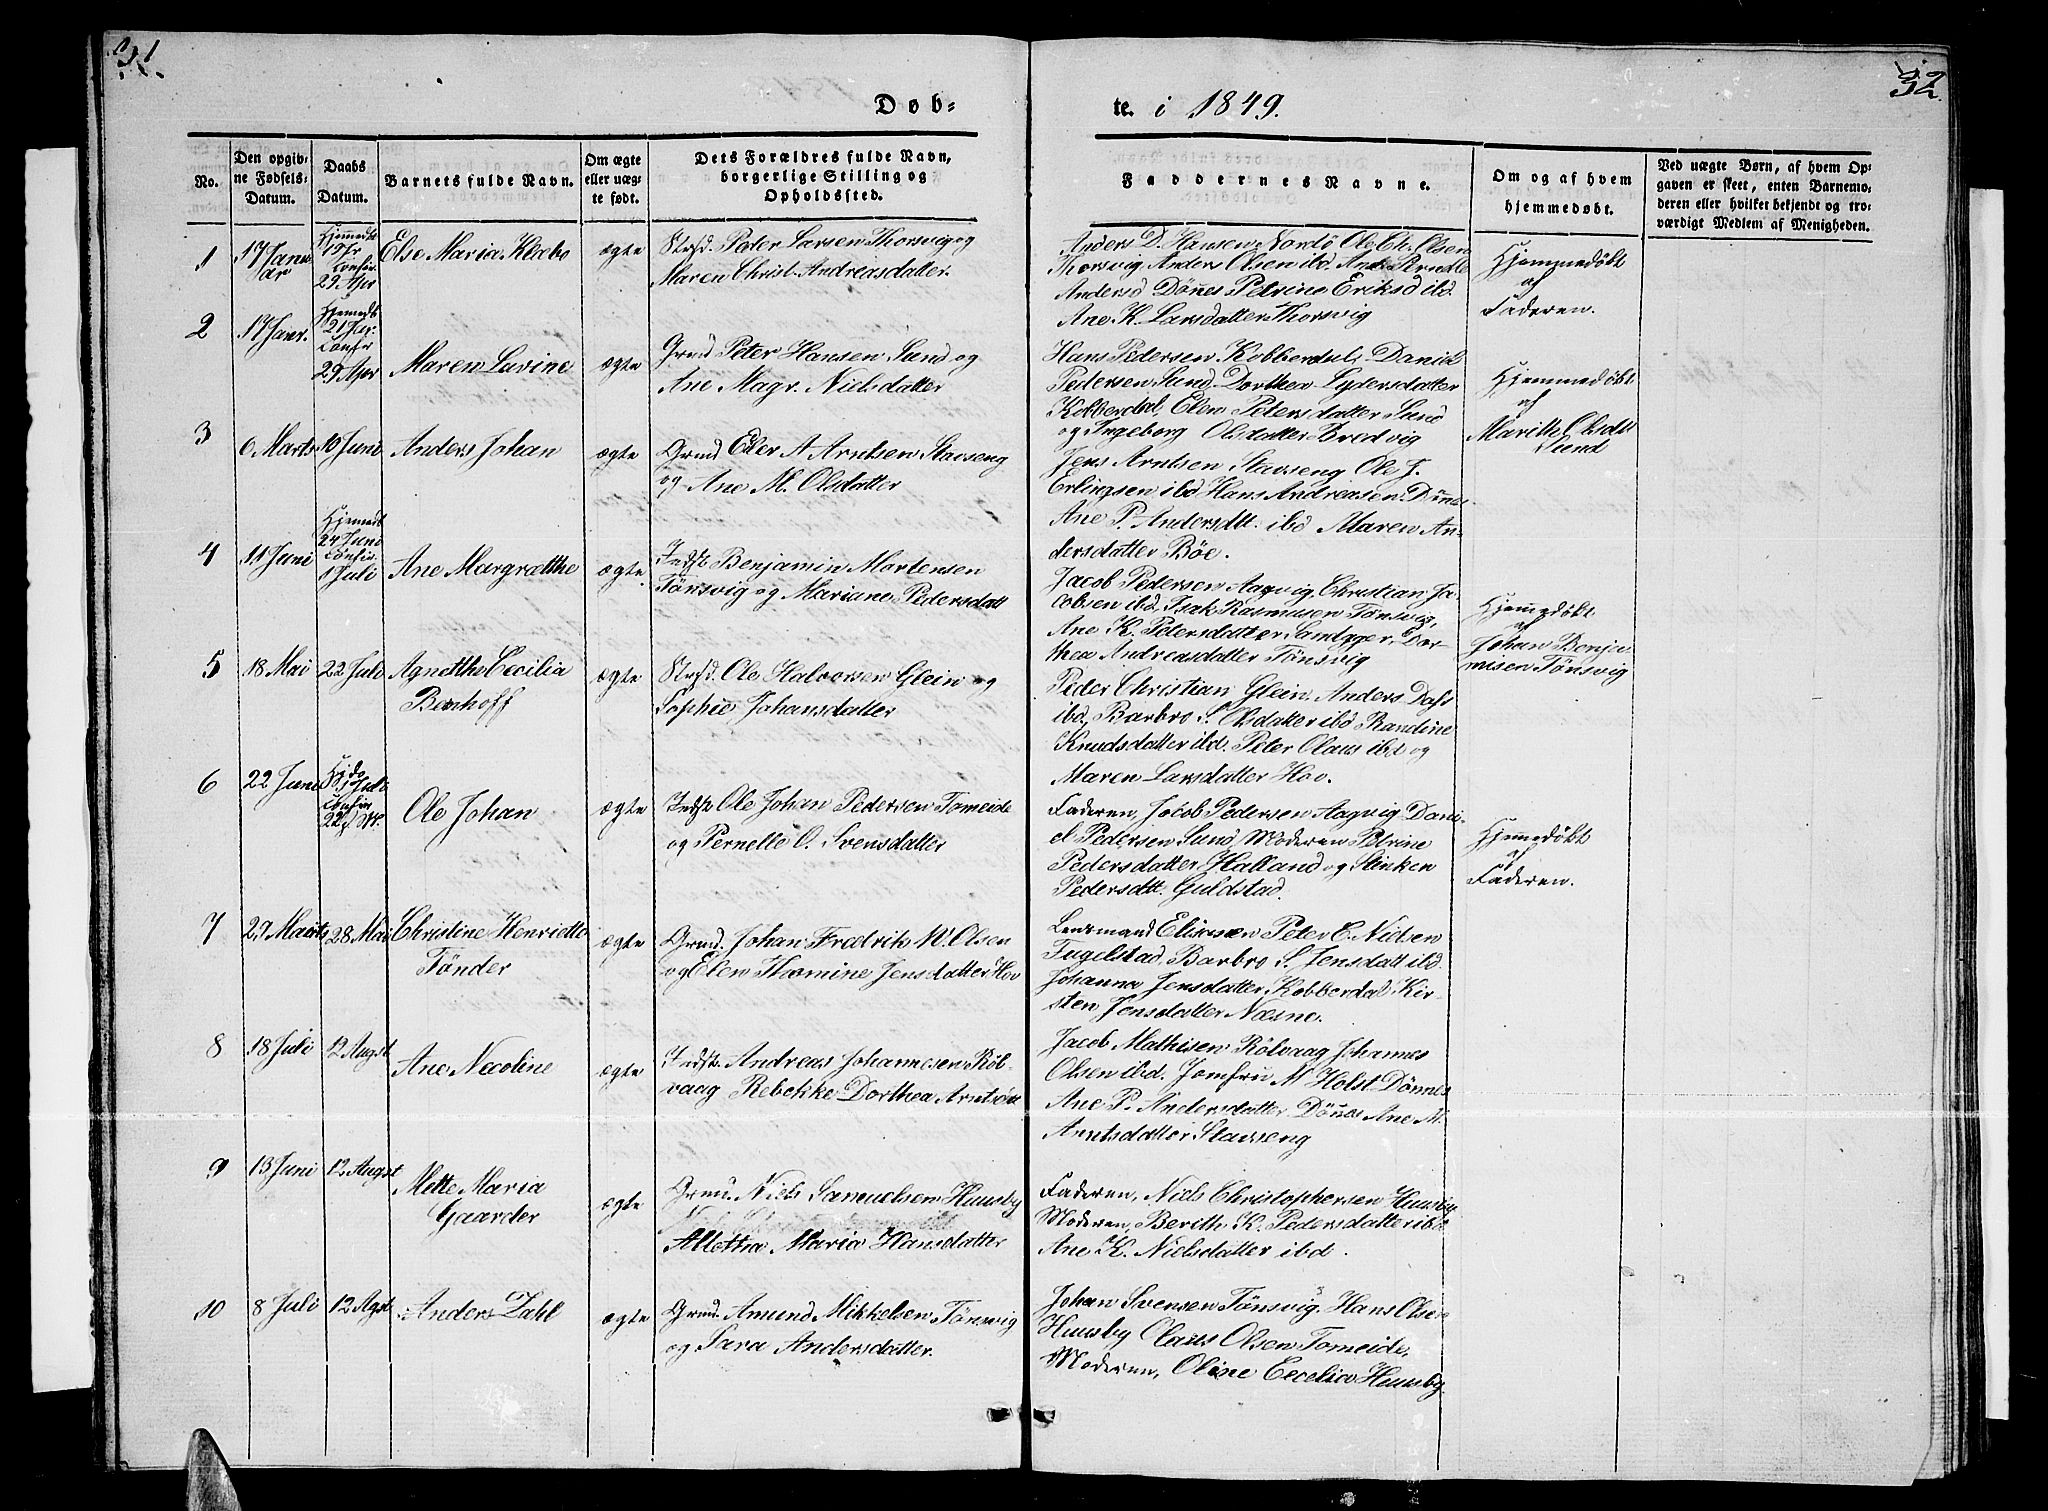 31.
32.
Døb-
te. i 1849.
No.
Den opgiv-
ne Fødsels-
Datum.
Daabs
Datum.
Barnets fulde Navn.
Om ægte
eller uæg-
te født.
Dets Forældres fulde Navn,
borgerlige Stilling og
Opholdssted.
Faddernes Navne.
Om og af hvem
hjemmedøbt.
Ved uægte Børn, af hvem Op-
gaven er skeet, enten Barnemo-
deren eller hvilket bekjendt og tro-
værdigt Medlem af Menigheden.
1
17 Janu
ar
Hjemmedt
Confir.
29 Apr
Else Maria Klæbo
ægte
Strsd. Peter Larsen Thorsvig og
Maren Christ. Andreasdatter.
Anders D. Hansen Nordö Ole Ch. Olsen
Thorsvig, Anders Olsen ibd. Ane Pernelle
Andersd Dönnes Petrine Eriksd ibd.
Ane K. Larsdatter Thorsvig
Hjemmedöbt
af
Faderen.
2
17 Janr.
Hjemedt
21 Jar.
Confir
29 Apr
Maren Lavine
ægte
Grmd Peter Hansen Sund og
Ane Magr. Nielsdatter
Hans Pedersen Kobberdal Daniel
Pedersen Sund, Dorthea Lydersdatter
Kobberdal, Elen Petersdatter Sund
og Ingeborg Olsdatter Bredvig
Hjemmedöbt
af
Marith Olsdt
Sund
3
6 Marts
10 Juni
Anders Johan
ægte
Grmd Eder A Arntsen Stavseng
og Ane M. Olsdatter
Jens Arntsen Stavseng Ole J.
Erlingsen ibd Hans Andreasen Dönnes
Ane P. Andersdtt. ibd Maren An-
dersdatter Böe.
4
11 Juni
Hjemedt
24 Juni
Confir.
1 Juli
Ane Margrethe
ægte
Indst Benjamin Mortensen
Tönsvig og Mariane Pedersdatt
Jacob Pedersen Aagvig, Christian Ja-
cobsen ibd, Isak Rasmussen Tönsvig,
Ane K. Petersdatter Dor-
thea Andreasdatter Tönsvig
Hjemmedöbt
af
Johan Benja
misen Tönsvig
5
18 Mai
22 Juli
Agnethe Cecilia
Benhoff
ægte
Strsd. Ole Halvorsen Glein og
Sophie Johansdatter
Peder Christian Glein, Anders Dass
ibd, Barbro S. Olsdatter ibd Randine
Knudsdatter ibd. Peter Olaus ibd og
Maren Larsdatter Hov.
6
22 Juni
1 Juli
Confir
22 M.
Ole Johan
ægte
Indst Ole Johan Pedersen Tomeide
og Pernelle O. Svensdatter
Faderen, Jacob Pedersen Aagvig, Dani-
el Pedersen Sund, Moderen Petrine
Pedersdatter Halland og Stinken
Pedersdtt. Guldstad.
Hjemmedöbt
af
Faderen.
7
29 Marts
28 Mai
Christine Henriette
Tönder
ægte
Grmd. Johan Fredrik W. Olsen
og Elen Thomine Jensdatter Hov
Lensmand Eliesen Peter C. Nielsen
Fugelstad, Barbro S. Jensdatt ibd.
Johanna Jensdatter Kobberdal Kir-
sten Jensdatter Næsne.
8
18 Juli
12 Augst
Ane Necoline
ægte
Indst. Andreas Johannesen Röl-
vaag Rebekke Dorthea Arntsen
Jacob Mathisen Rölvaag Johannes
Olsen ibd. Jomfru M Holst Dönnes
Ane P. Andersdatter Dönnes Ane M.
Arntsdatter Stavseng
9
13 Juni
12 Augst
Mette Maria
Gaarder
ægte
Grmd. Niels Samuelsen Huusby
Alletha Maria Hansdatter
Faderen, Niels Christophersen Huusby
Moderen, Berith K. Pedersdatter ibd.
Ane K. Nielsdatter ibd.
10
8 Juli
12 Agst
Anders Zahl
ægte
Grmd. Amund Mikkelsen Tönsvig
og Sara Andersdatter.
Johan Svensen Tönsvig. Hans Olsen
Huusby Olaus Olsen Tomeide,
Moderen, Oline Cecelia Huusby.